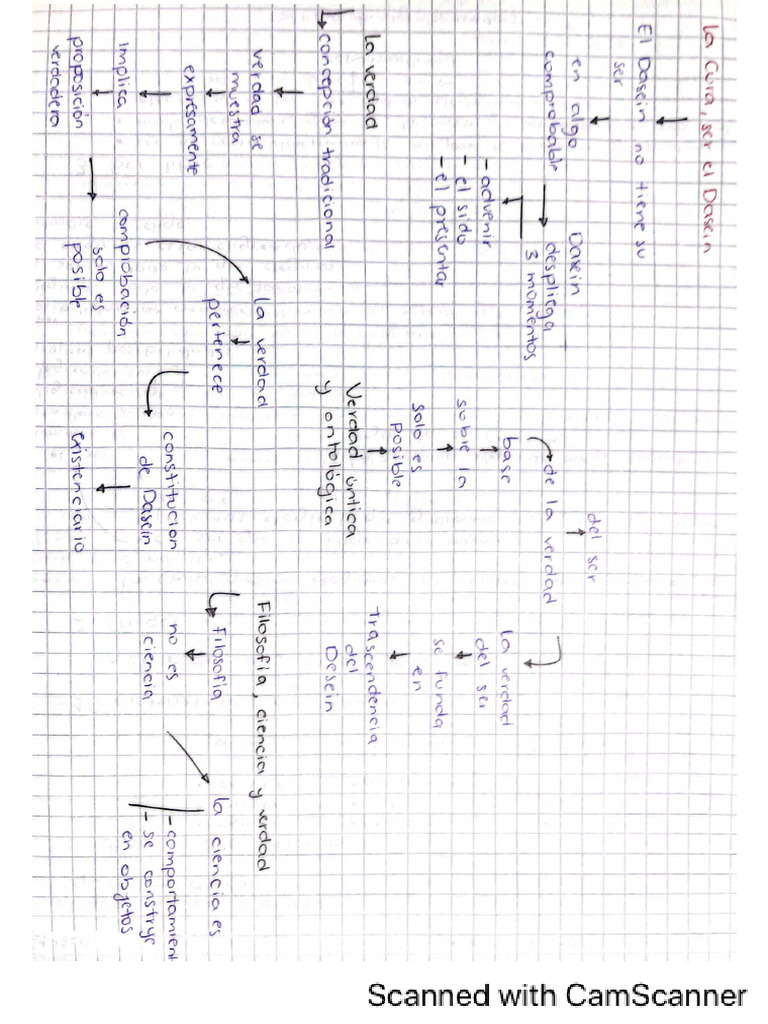 La Cura, ser el Dasein
El Dasein no tiene su
ser
en algo
comprobable
Dasein
despliega
3 momentos
- advenir
- el sido
- el presentar
del ser
de la verdad
base
sobre la
solo es
posible
Verdad óntica
y ontológica
la verdad
del ser
se funda
en
Trascendencia
del
Desein
la verdad
concepción tradicional
verdad se
muestra
expresamente
Implica
proposición
verdadera
comprobación
solo es
posible
la verdad
pertenece
constitucion
de Dasein
existenciario
Filosofía, ciencia y verdad
Filosofía
no es
ciencia
la ciencia es
- comportamient
- se construye
en objetos
Scanned with CamScanner